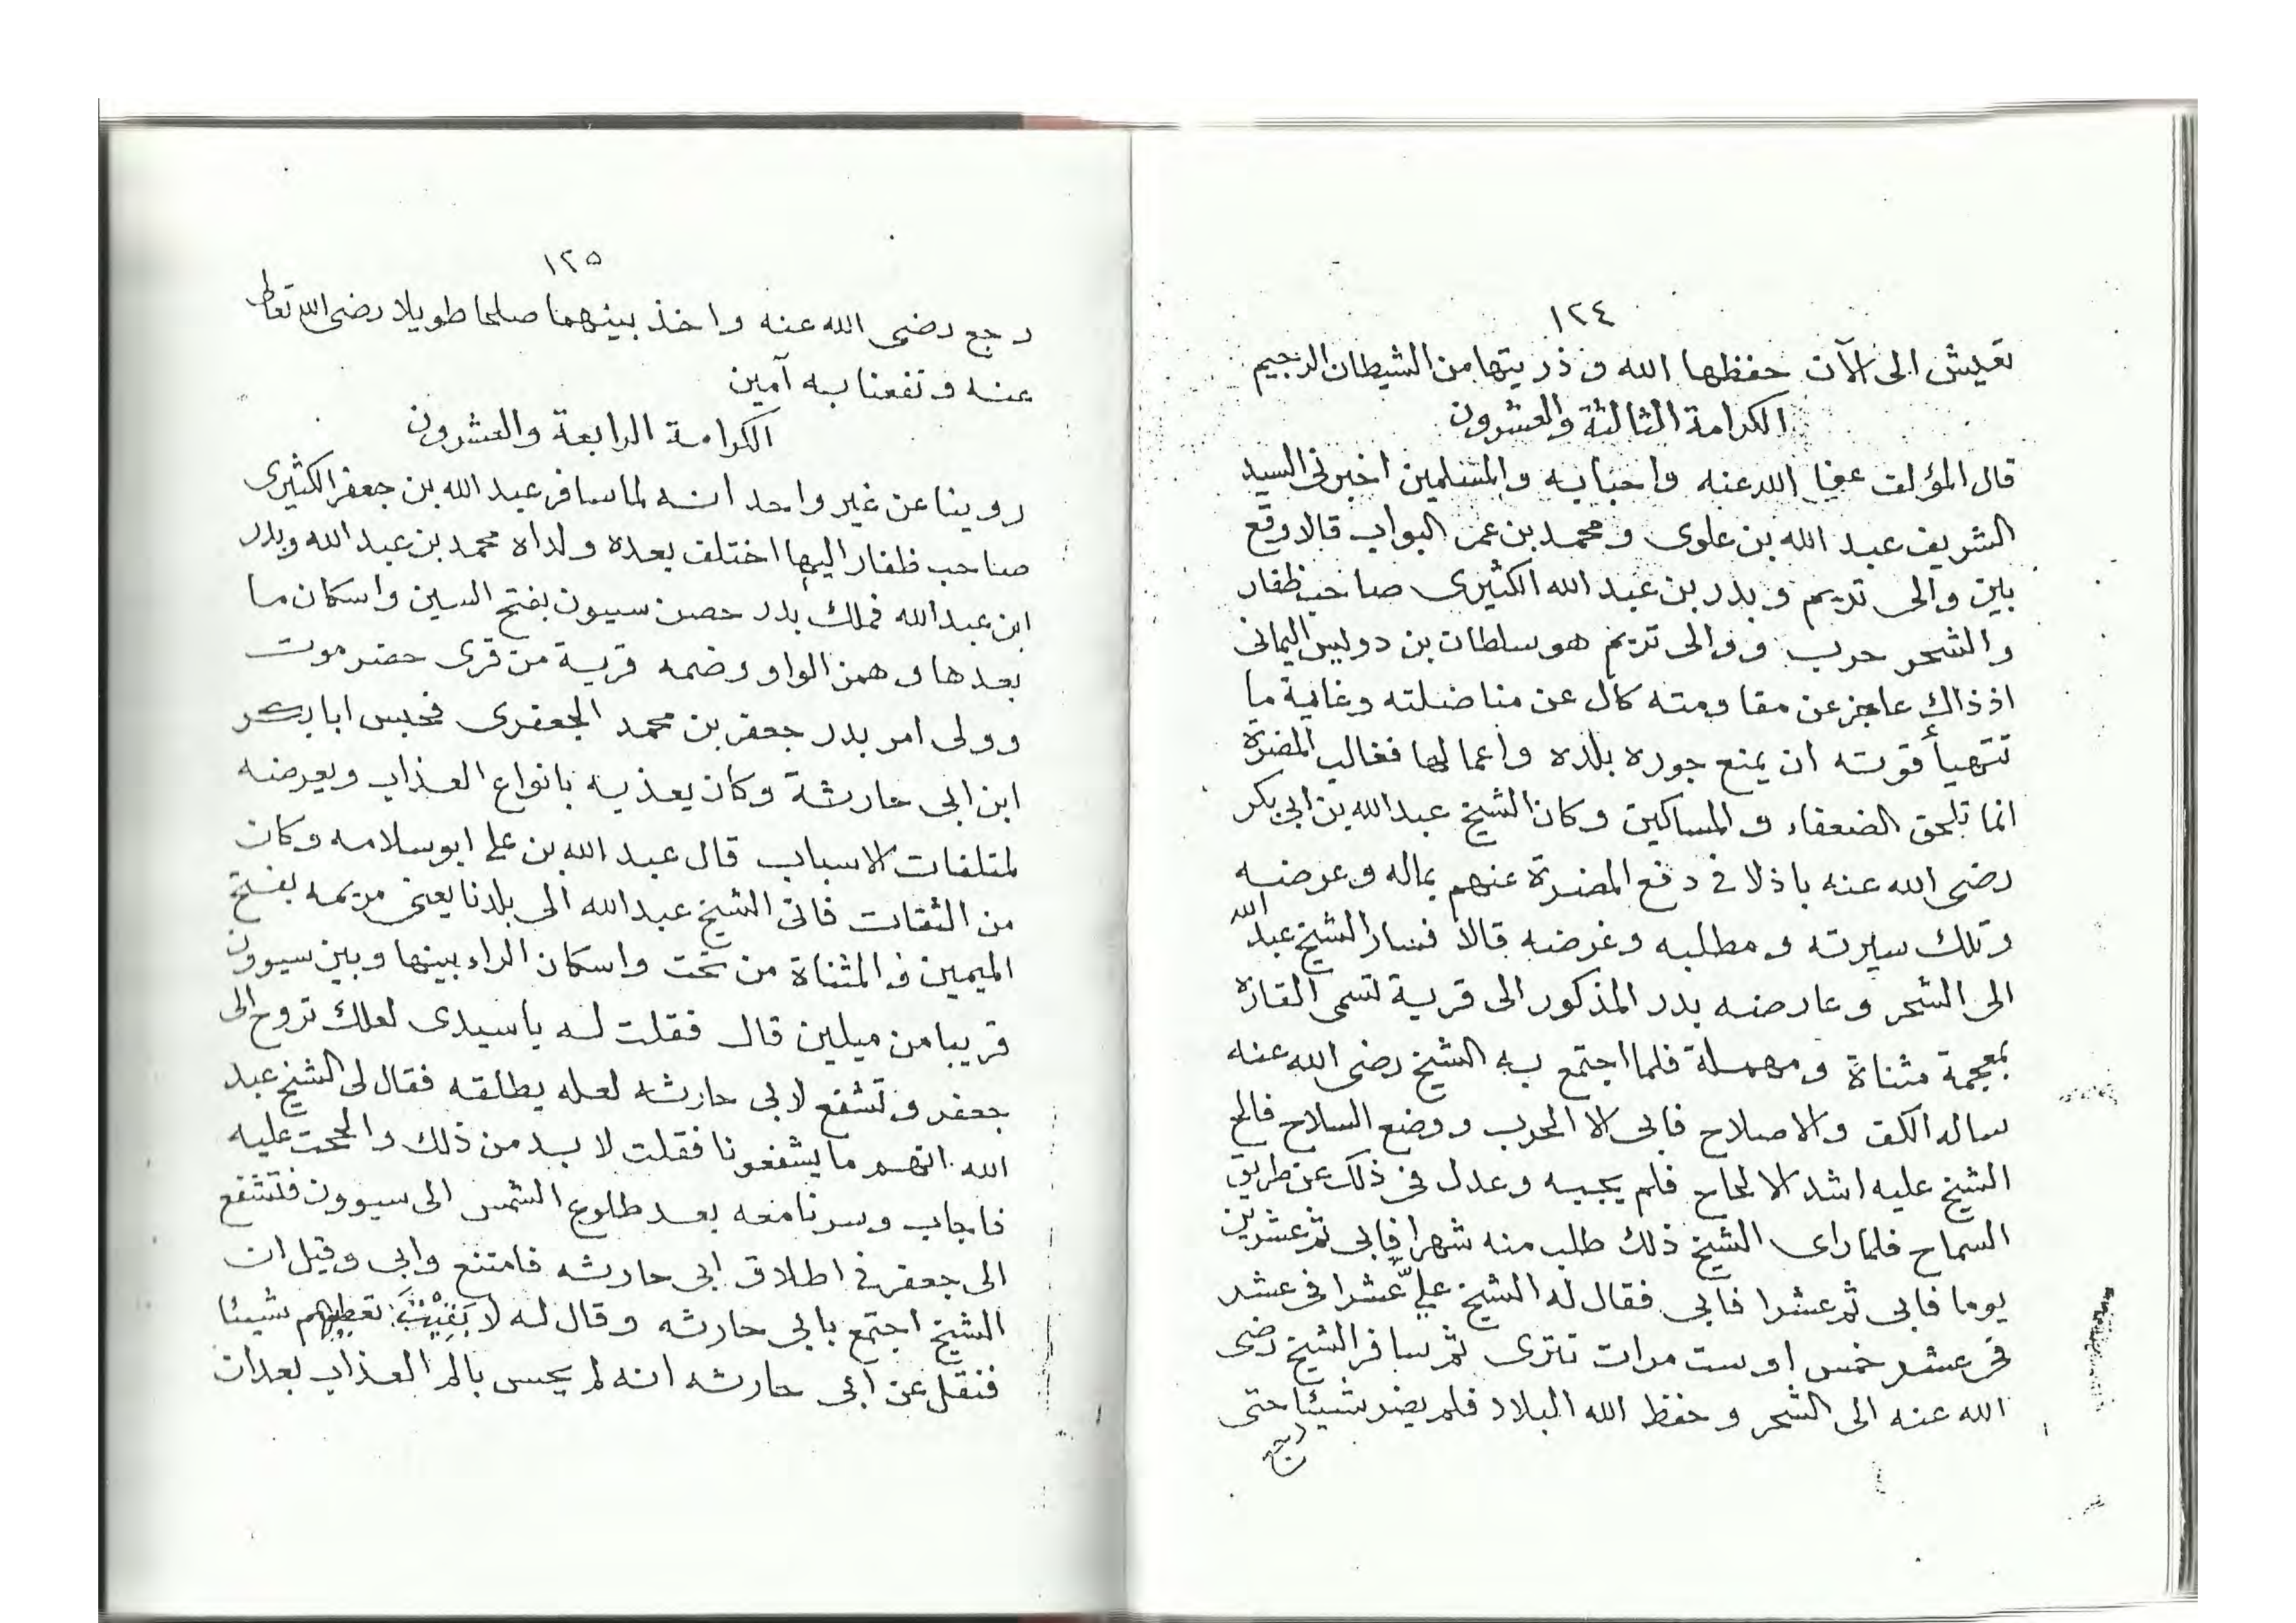 ١٢٤
تعيش الى الآن حفظها الله وذريتها من الشيطان الرجيم
الكرامة الثالثة والعشرون
قال المؤلف عفا الله عنه واحبابه والمسلمين اخبرني السيد
الشريف عبد الله بن علوى ومحمد بن عمر البواب قالا وقع
بين والى تريم وبدر بن عبد الله الكثيرى صاحب ظفار
والشحر حرب ووالى تريم هو سلطان بن دويس اليمانى
اذ ذاك عاجز عن مقاومته كال عن مناضلته وغاية ما
تتهيأ قوته ان يمنع جوره بلده واعمالها فغالب المضرة
انما تلحق الضعفاء والمساكين وكان الشيخ عبد الله بن ابى بكر
رضى الله عنه باذلا فى دفع المضرة عنهم بماله وعرضه
وتلك سيرته ومطلبه وغرضه قالا فسار الشيخ عبد الله
الى الشحر وعارضه بدر المذكور الى قرية تسمى القارة
بمعجمة مثناة ومهملة فلما اجتمع به الشيخ رضى الله عنه
ساله الكف والاصلاح فابى الا الحرب ووضع السلاح فالح
الشيخ عليه اشد الالحاح فلم يجبه وعدل فى ذلك عن طريق
السماح فلما راى الشيخ ذلك طلب منه شهرا فابى ثم عشرين
يوما فابى ثم عشرا فابى فقال له الشيخ عليّ عشرا فى عشر
فى عشر خمس او ست مرات تترى ثم سافر الشيخ رضى
الله عنه الى الشحر وحفظ الله البلاد فلم يضر شيئا حتى
رجع
١٢٥
رجع رضى الله عنه واخذ بينهما صلحا طويلا رضى الله تعالى
عنه ونفعنا به آمين
الكرامة الرابعة والعشرون
روينا عن غير واحد انه لما سافر عبد الله بن جعفر الكثيرى
صاحب ظفار اليها اختلف بعده ولداه محمد بن عبد الله وبدر
ابن عبد الله فملك بدر حصن سيون بفتح السين واسكان ما
بعدها وهمز الواو وضمه قرية من قرى حضرموت
وولى امر بدر جعفر بن محمد الجعفرى فحبس ابا بكر
ابن ابى حارثة وكان يعذبه بانواع العذاب ويعرضه
لمتلفات الاسباب قال عبد الله بن على ابو سلامه وكان
من الثقات فاتى الشيخ عبد الله الى بلدنا يعنى مريمه بفتح
الميمين والمثناة من تحت واسكان الراء بينها وبين سيوون
قريبا من ميلين قال فقلت له ياسيدى لعلك تروح الى
جعفر وتشفع لابى حارثه لعله يطلقه فقال لى الشيخ عبد
الله انهم ما يشفعونا فقلت لا بد من ذلك والححت عليه
فاجاب وسرنا معه بعد طلوع الشمس الى سيوون فتشفع
الى جعفر فى اطلاق ابى حارثه فامتنع وابى وقيل ان
الشيخ اجتمع بابى حارثه وقال له لا تعطيهم شيئا
فنقل عن ابى حارثه انه لم يحس بالم العذاب بعد ان